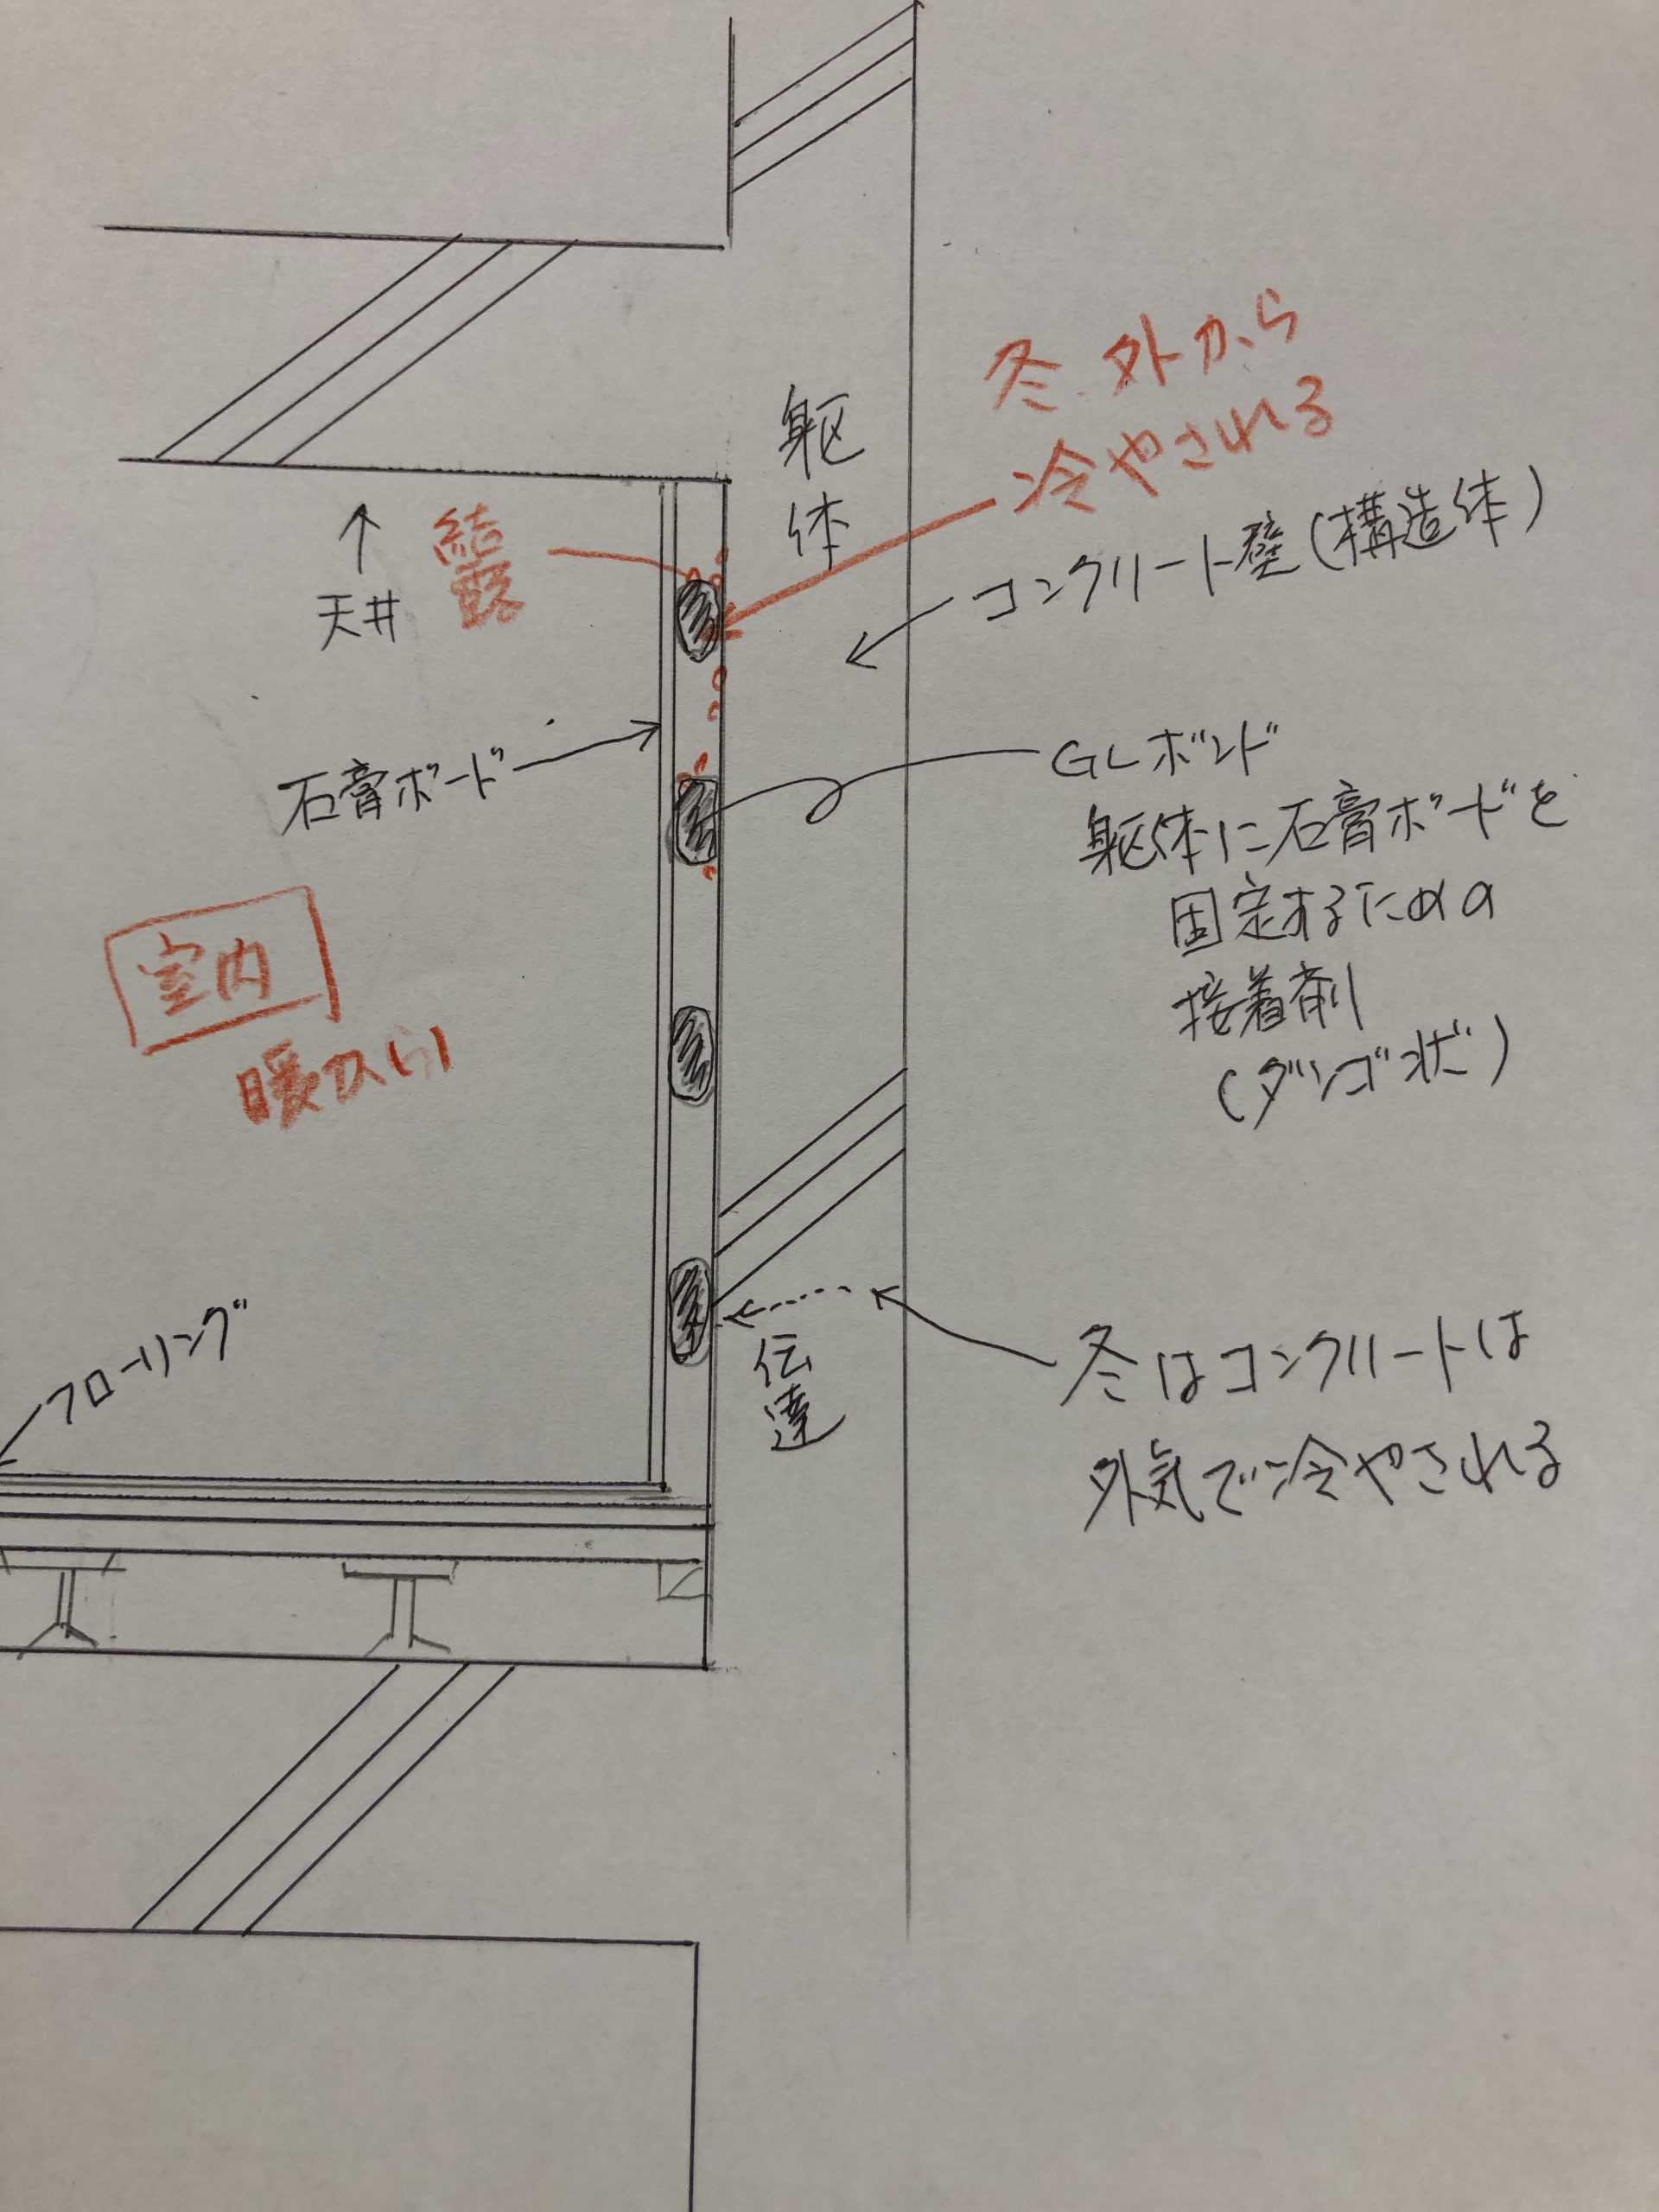 冬 外から
冷やされる
躯体
コンクリート壁(構造体)
結露
天井
石膏ボード
GLボンド
躯体に石膏ボードを
固定するための
接着剤
(ダンゴ状)
室内
暖かい
フローリング
伝達
冬はコンクリートは
外気で冷やされる